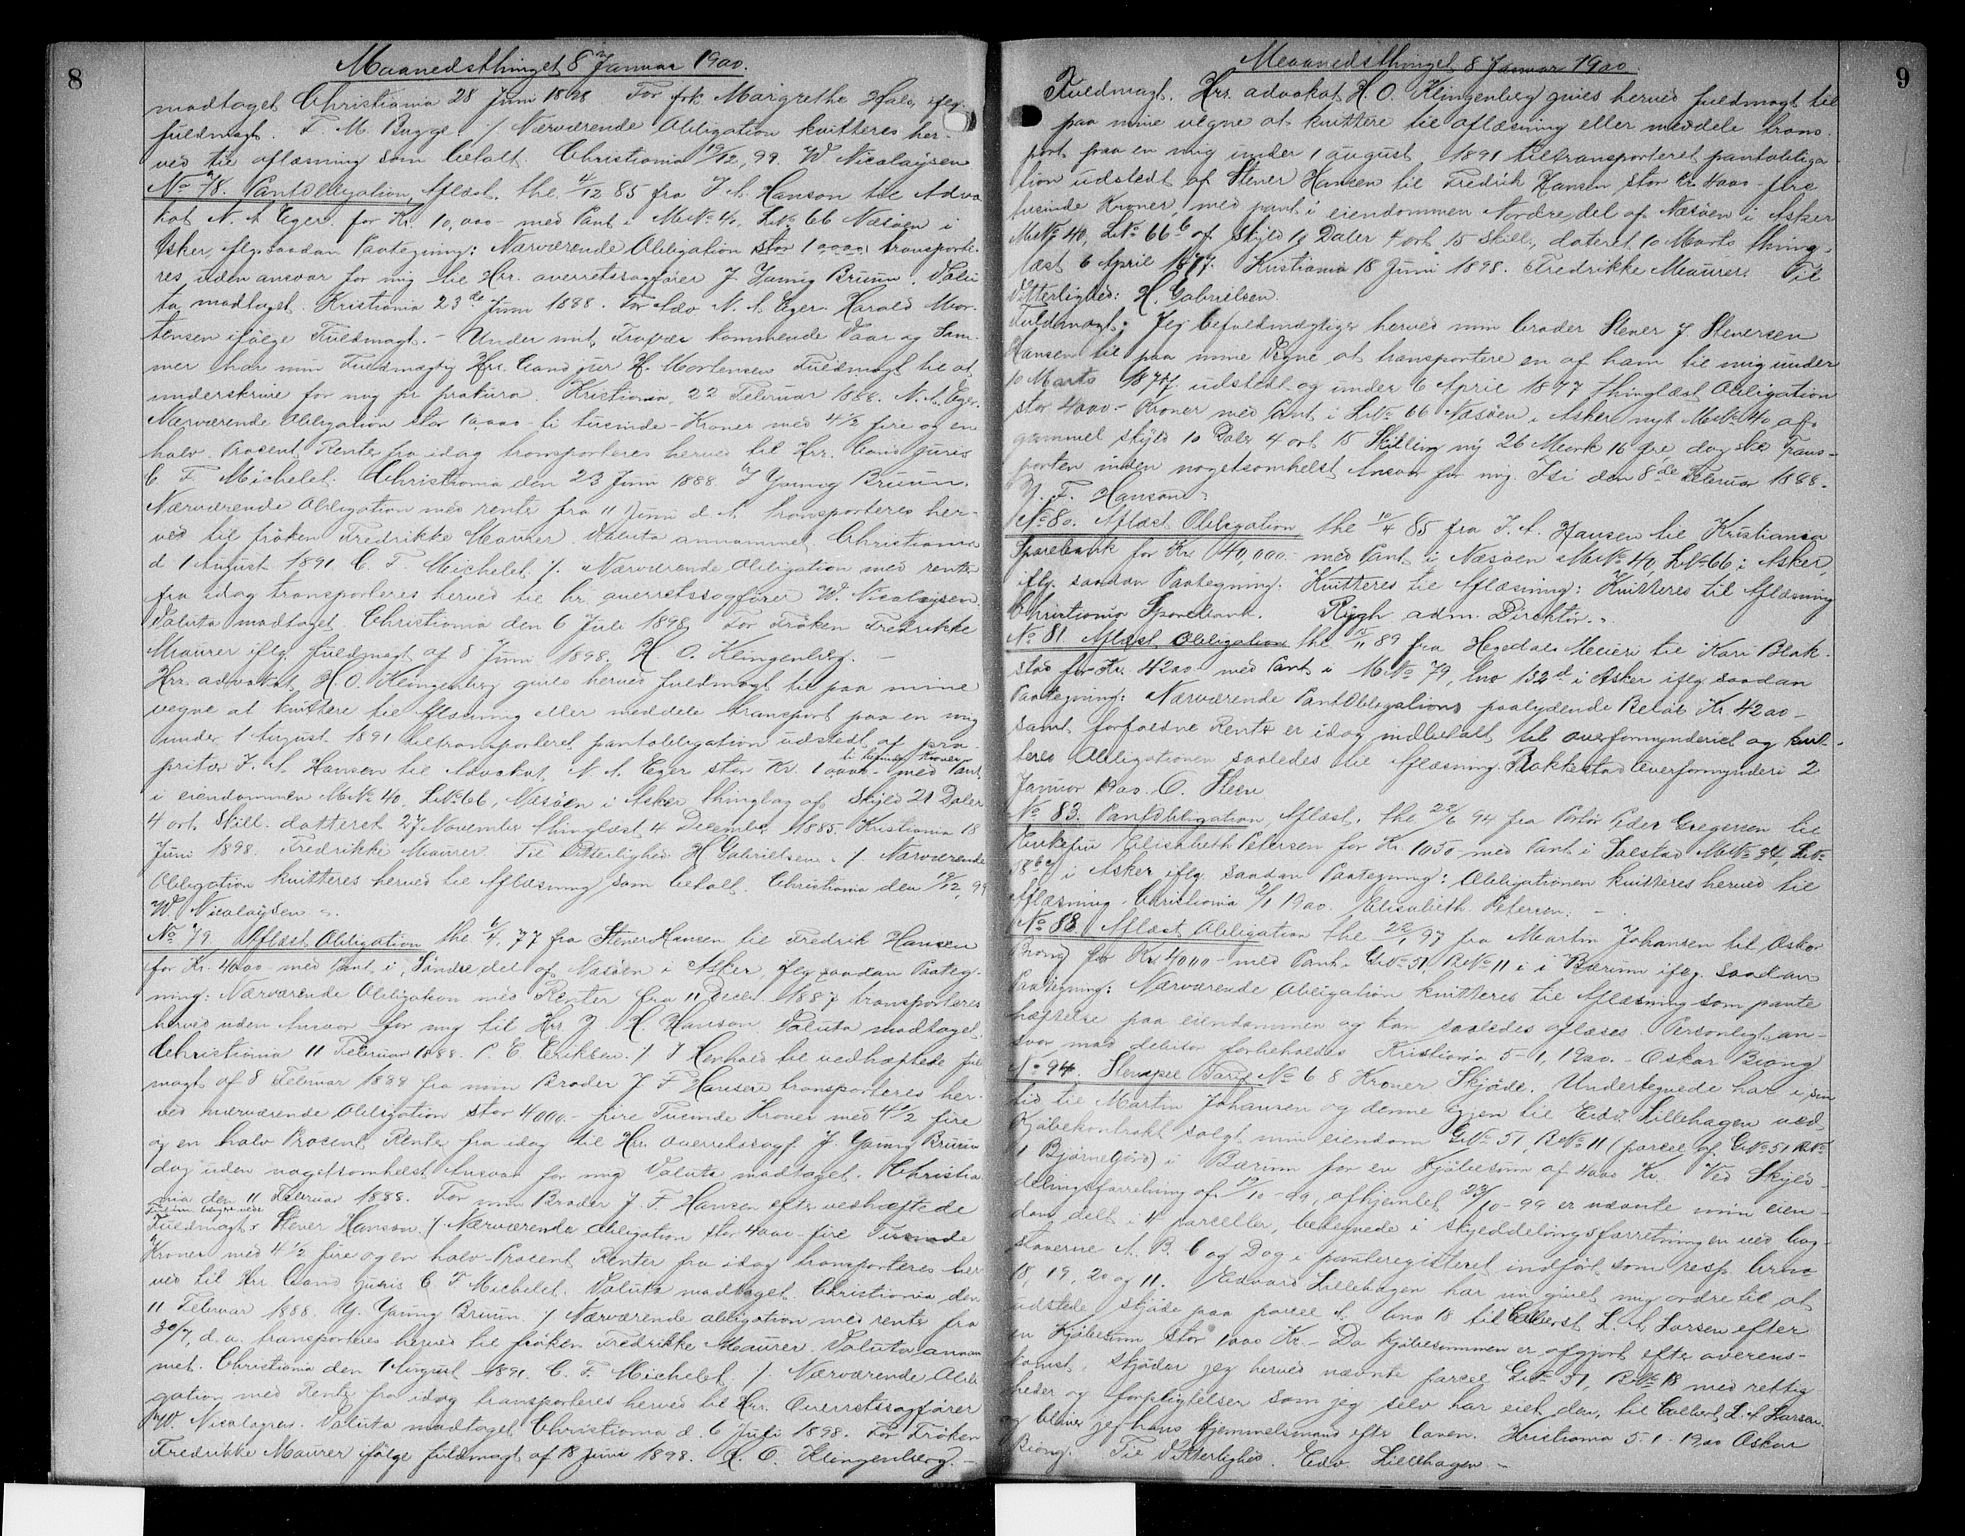 8
Maanedsthinget 8 Januar 1900.
modtaget Christiania 28 Juni 1898 For frk Margrethe Hals iflg.
fuldmagt. F. M. Bugge ./. Nærværende Obligation kvitteres her-
ved til aflæsning som betalt. Christiania 19/12 99. W Nicolaysen
No 78. Pantobligation, Aflæst, thl 4/12 85 fra J. A. Hanson til Advo
kat N. A. Eger for Kr. 10,000 - med Pant i MNo 40, LNo 66 Næsøen i
Asker, iflg. saadan Paategning: Nærværende Obligation stor 10,000 transporte-
res uden ansvar for mig til Hr. overretssagfører J. Young Bruun. Valu
ta modtaget. Kristiania 23de Juni 1888. For Adv N. A. Eger. Harald Mor-
tensen ifølge Fuldmagt. - Under mit Fravær kommende Vaar og Som-
mer har min Fuldmægtig Hr. Cand jur H. Mortensen Fuldmagt til at
underskrive for mig pr prokura. Kristiania, 22 Februar 1888. N. A. Eger.
Nærværende Obligation stor 10,000 - ti tusinde - Kroner med 4 1/2 fire og en
halv Procent Renter fra idag transporteres herved til Hr. Cand juris
C. F. Michelet. Christiania den 23 Juni 1888. J Young Bruun.
Nærværende Obligation med renter fra 11 Juni d. A. transporteres her-
ved til frøken Fredrikke Maurer. Valuta annammet. Christiania
d 1 August 1891. C. F. Michelet. /. Nærværende Obligation med renter
fra idag transporteres herved til hr. overretssagfører W. Nicolaysen.
Valuta modtaget. Christiania den 6 Juli 1898. For Frøken Fredrikke
Maurer iflg. fuldmagt af 8 Juni 1898. H. O. Klingenberg. -
Hr. advokat H. O. Klingenberg gives herved fuldmagt til paa mine
vegne at kvittere til Aflæsning eller meddele transport paa en mig
under 1 August 1891 tiltransporteret pantobligation udstedt af pro-
ti tusinde Kroner
prietær J. A. Hansen til Advokat N. A. Eger stor Kr. 10,000 - med Pant
i eiendommen MNo 40, LNo 66, Næsøen i Asker thinglag af Skyld 21 Daler
4 ort Skill. datteret 27 November thinglæst 4 December 1885. Kristiania 18
Juni 1898. Fredrikke Maurer. Til Vitterlighed H Gabrielsen. /. Nærværende
Obligation kvitteres herved til Aflæsning som betalt. Christiania den 19/12 99
W Nicolaysen -.
No 79 Aflæst Obligation thl 6/4 77 fra Stener Hansen til Fredrik Hansen
for Kr. 4000 - med Pant i Søndre del af Næsøen i Asker, iflg saadan Paateg-
ning: Nærværende Obligation med Renter fra 11 Decer 1887 transporteres
herved uden Ansvar for mig til Hr. J. H. Hanson. Valuta modtaget.
Christiania 11 Februar 1888. P. C. Eriksen. /. I Henhold til vedhæftede ful
magt af 8 Februar 1888 fra min Broder J. F. Hansen transporteres her-
ved nærværende Obligation stor 4000 - fire Tusinde Kroner med 4 1/2 fire
og en halv Procent Renter fra idag til Hr. overretssagf. J. Young Bruun
dog uden nogetsomhelst Ansvar for mig Valuta modtaget. Christia
nia den 11 Februar 1888. For min Broder J. F. Hansen efter vedhæftede
Fuldmagt. Stener Hanson. / Nærværende Obligation stor 4000 - fire Tusinde
Kroner med 4 1/2 fire og en halv Procent Renter fra idag transporteres her
ved til Hr Cand juris C. F. Michelet. Valuta modtaget. Christiania den
11 Februar 1888. J. Young Bruun. /. Nærværende obligation med renter fra
30/7, d. a. transporteres herved til frøken Fredrikke Maurer. Valuta annam
met. Christiania den 1 August 1891. C. F. Michelet. /. Nærværende Obli
gation med Renter fra idag transporteres herved til Hr. Overretssagfører
W Nicolaysen. Valuta modtaget. Christiania d. 6 Juli 1898. For Frøken
Fredrikke Maurer ifølge fuldmagt af 18 Juni 1898. H. O. Klingenberg. -
9
Maanedsthinget 8 Januar 1900.
Fuldmagt. Hr. advokat H. O. Klingenberg gives herved fuldmagt til
paa mine vegne at kvittere til aflæsning eller meddele trans-
port paa en mig under 1 august 1891 tiltransporteret pantobliga-
tion udstedt af Stener Hansen til Fredrik Hansen stor Kr 4000 - fire
tusinde Kroner, med pant i eiendommen Nordre del af Næsøen i Asker
MNo 40, LNo 66 b af Skyld 10 Daler 4 ort 15 Skill., dateret 10 Marts thing-
læst 6 April 1877. Kristiania 18 Juni 1898. Fredrikke Maurer. Til
Vitterlighed: H. Gabrielsen.
Fuldmagt: Jeg befuldmægtiger herved min broder Stener J. Stenersen
Hansen til paa mine Vegne at transportere en af ham til mig under
10 Marts 1877 udstedt og under 6 April 1877 thinglæst Obligation
stor 4000 - Kroner med Pant i LNo 66 Næsøen i Asker nyt MNo 40 af
gammel skyld 10 Daler 4 ort 15 Skilling ny 26 Mark 16 Øre, dog sker Trans-
porten uden nogetsomhelst Ansvar for mig. Ski den 8de Februar 1888.
J. F. Hanson -
No 80. Aflæst Obligation thl 10/4 85 fra J. A. Hansen til Kristiania
Sparebank for Kr 40,000 - med Pant i Næsøen MNo 40, LNo 66 i Asker,
iflg. saadan Paategning: Kvitteres til Aflæsning: Kvitteres til Aflæsning
Christiania Sparebank. Rygh adm. Direktør. -
No 81. Aflæst Obligation thl 11/11 89 fra Hegdals Meieri til Kari Blak-
stad for Kr. 4200 - med Pant i MNo 79, lno 132 d i Asker iflg saadan
Paategning: Nærværende Pantobligations paalydende Beløb Kr. 4200 -
samt forfaldne Renter er idag indbetalt til overformynderiet og kvit-
teres Obligationen saaledes til Aflæsning. Rakkestad Overformynderi 2
Januar 1900. O. Steen
No 83. Pantobligation, Aflæst, thl 22/6 94 fra Peder Gregersen til
Elisabeth Petersen for Kr. 1050 - med Pant i Solstad MNo 34, LNo
i Asker iflg saadan Paategning: Obligationen kvitteres herved til
Aflæsning. Christiania 2/1 1900. Elisabeth Petersen. -
No 88. Aflæst Obligation thl 22/1 97 fra Martin Johansen til Oskar
Biong for Kr. 4000 - med Pant i GNo 51, BNo 11 i i Bærum iflg. saadan
Paategning: Nærværende Obligation kvitteres til Aflæsning som pante
hæftelse paa eiendommen og kan saaledes aflæses. Personligt an-
svar mod debitor forbeholdes Kristiania 5-1, 1900. - Oskar Biong
No 94. Stempel Tarif No 6 8 Kroner Skjøde. Undertegnede har i sin
tid til Martin Johansen og denne igjen til Edv. Lillehagen ved
Kjøbekontrakt solgt min eiendom GNo 51, BNo 11 (parcel af GNo 51 BNo
1 Bjørnegård) i Bærum for en Kjøbesum af 4000 Kr. Ved Skyld-
delingsforretning af 19/10 - 99, afhjemlet 23/10 - 99 er nævnte min eien-
dom delt i 4 parceller, betegnede i skylddelingsforretningen ved bog-
staverne A. B. C og D og i panteregisteret indført som resp. bno
18, 19, 20 og 11. Edvard Lillehagen har nu givet mig ordre til at
udstede skjøde paa parcel A. bno 18 til L. A. Larsen efter
en Kjøbesum stor 1000 Kr. - Da Kjøbesummen er afgjort efter overens-
komst, skjøder jeg herved nævnte parcel GNo 51, BNo 18 med rettig
heder og forpligtelser som jeg selv har eiet den, til L. A Larsen
og bliver jeg hans Hjemmelsmand efter loven. Kristiania 5-1-1900 Oskar
Biong. Til Vitterlighed. Edv. Lillehagen -